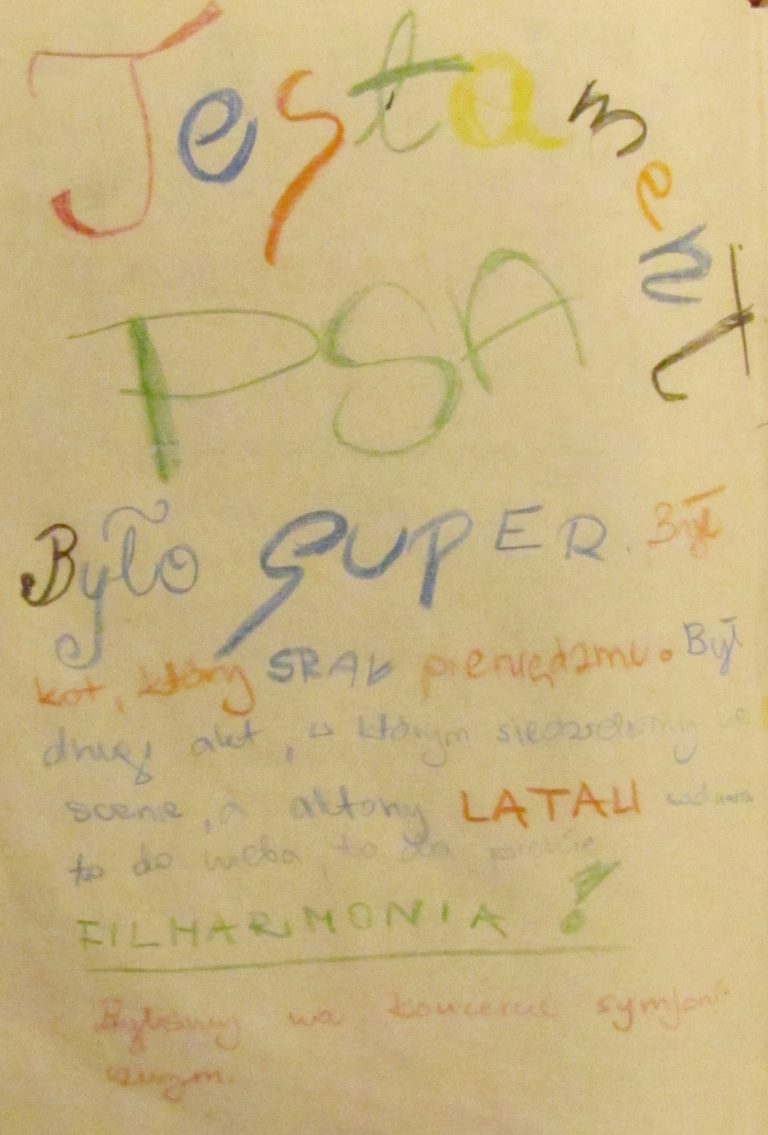 Testament
PSA
Było SUPER. Był
kot, który SRAŁ pieniędzmi. Był
drugi akt, w którym siedzieliśmy na
scenie, a aktorzy LATALI nad nami
to do nieba, to do
FILHARMONIA!
Byliśmy na koncercie symfoni
cznym.